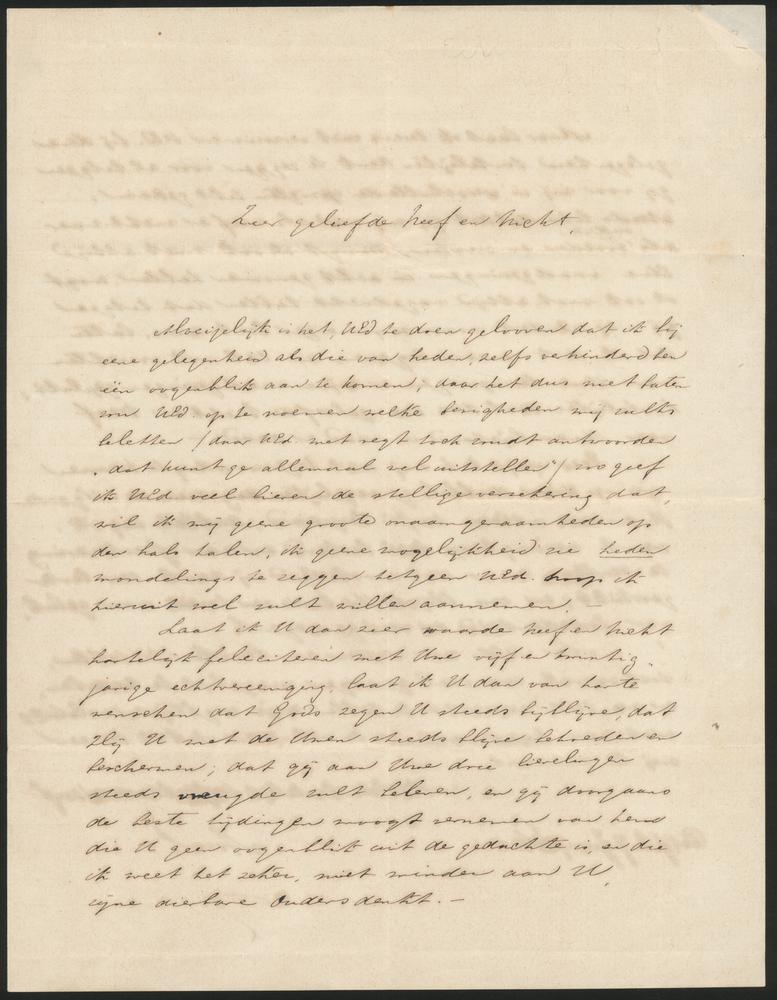 Zeer geliefde Neef en Nicht,
Moeijelijk is het, UEd te doen gelooven dat ik bij
eene gelegenheid als die van heden, zelfs verhinderd ben
één oogenblik aan te komen; daar het dus niet baten
zou UEd. op te noemen welke bezigheden mij zulks
beletten / daar UEd. met regt toch zoudt antwoorden
„dat kunt ge allemaal wel uitstellen" / zoo geef
ik UEd veel liever de stellige verzekering dat,
wil ik mij geene groote onaangenaamheden op
den hals halen, ik geene mogelijkheid zie heden
mondelings te zeggen hetgeen UEd. hoop ik
hieruit wel zult willen aannemen. —
Laat ik U dan zeer waarde Neef en Nicht
hartelijk feliciteren met Uwe vijf en twintig-
jarige echtvereeniging, laat ik U dan van harte
wenschen dat Gods zegen U steeds bijblijve, dat
Hij U met de Uwen steeds blijve behoeden en
beschermen; dat gij aan Uwe drie lievelingen
steeds vreugde zult beleven, en gij doorgaans
de beste tijdingen moogt vernemen van hem
die U geen oogenblik uit de gedachte is, en die
ik weet het zeker, niet minder aan U,
zijne dierbare Ouders denkt. —